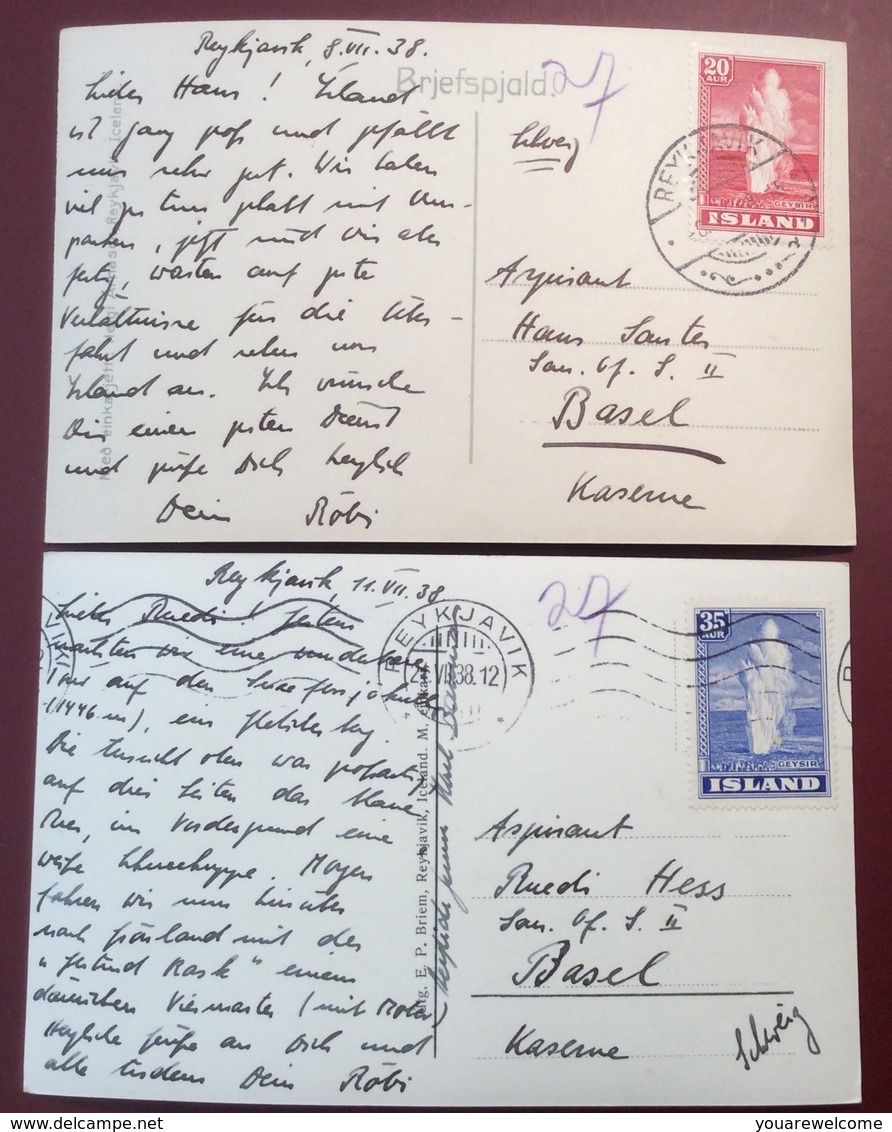 Reykjavik, 8.VII.38.
Liebes Hans! Island
ist ganz groß und gefällt
mir sehr gut. Wir haben
viel zu tun gehabt mit Um-
packen, jetzt sind wir aber
fertig, warten auf gute
Verhältnisse für die Über-
fahrt und sehen uns
Island an. Ich wünsche
Dir einen guten Dienst
und grüße Dich herzlich
Dein Röbi
Brjefspjald.
27
Schweiz
20
AUR
GEYSIR
ISLAND
REYKJAVIK
Aspirant
Hans Sauter
San. Of. S. II
Basel
Kaserne
Reykjavik, 11.VII.38
Lieber Ruedi! Gestern
machten wir eine wunderbare
Tour auf den
(1446 m), ein Gletscherberg.
Die Aussicht oben war großartig,
auf drei Seiten das blaue
Meer, im Vordergrund eine
weiße Schneekuppe. Morgen
fahren wir nun hinüber
nach Grönland mit der
"Gertrud Rask" einem
dänischen Viermaster (mit Motor)
Herzliche Grüße an Dich und
alle andern Dein Röbi
27
REYKJAVIK
VII38.12
35
AUR
GEYSIR
ISLAND
Útg. E. P. Briem, Reykjavik, Iceland. M.
Aspirant
Ruedi Hess
San. Of. S. II
Basel
Kaserne
Schweiz
https://www.delcampe.net
youarewelcome